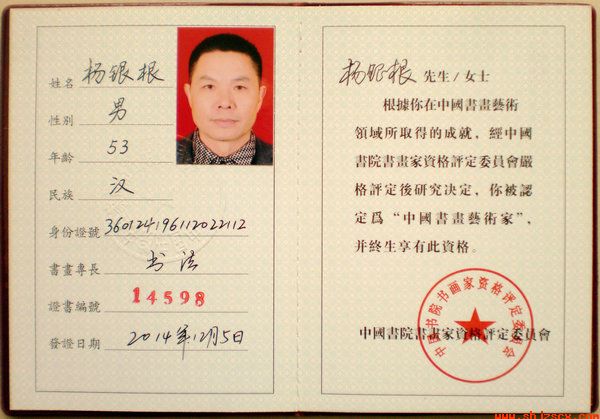 姓名 杨银根
性别 男
年齡 53
民族 汉
身份證號 360124196112022112
書畫專長 书法
證書編號 14598
發證日期 2014年12月5日
杨银根 先生/女士
根據你在中國書畫藝術
領域所取得的成就，經中國
書院書畫家資格評定委員會嚴
格評定後研究决定，你被認
定爲“中國書畫藝術家”，
并終生享有此資格。
中国书院书画家资格评定委员会
中國書院書畫家資格評定委員會
www.shjzscx.com